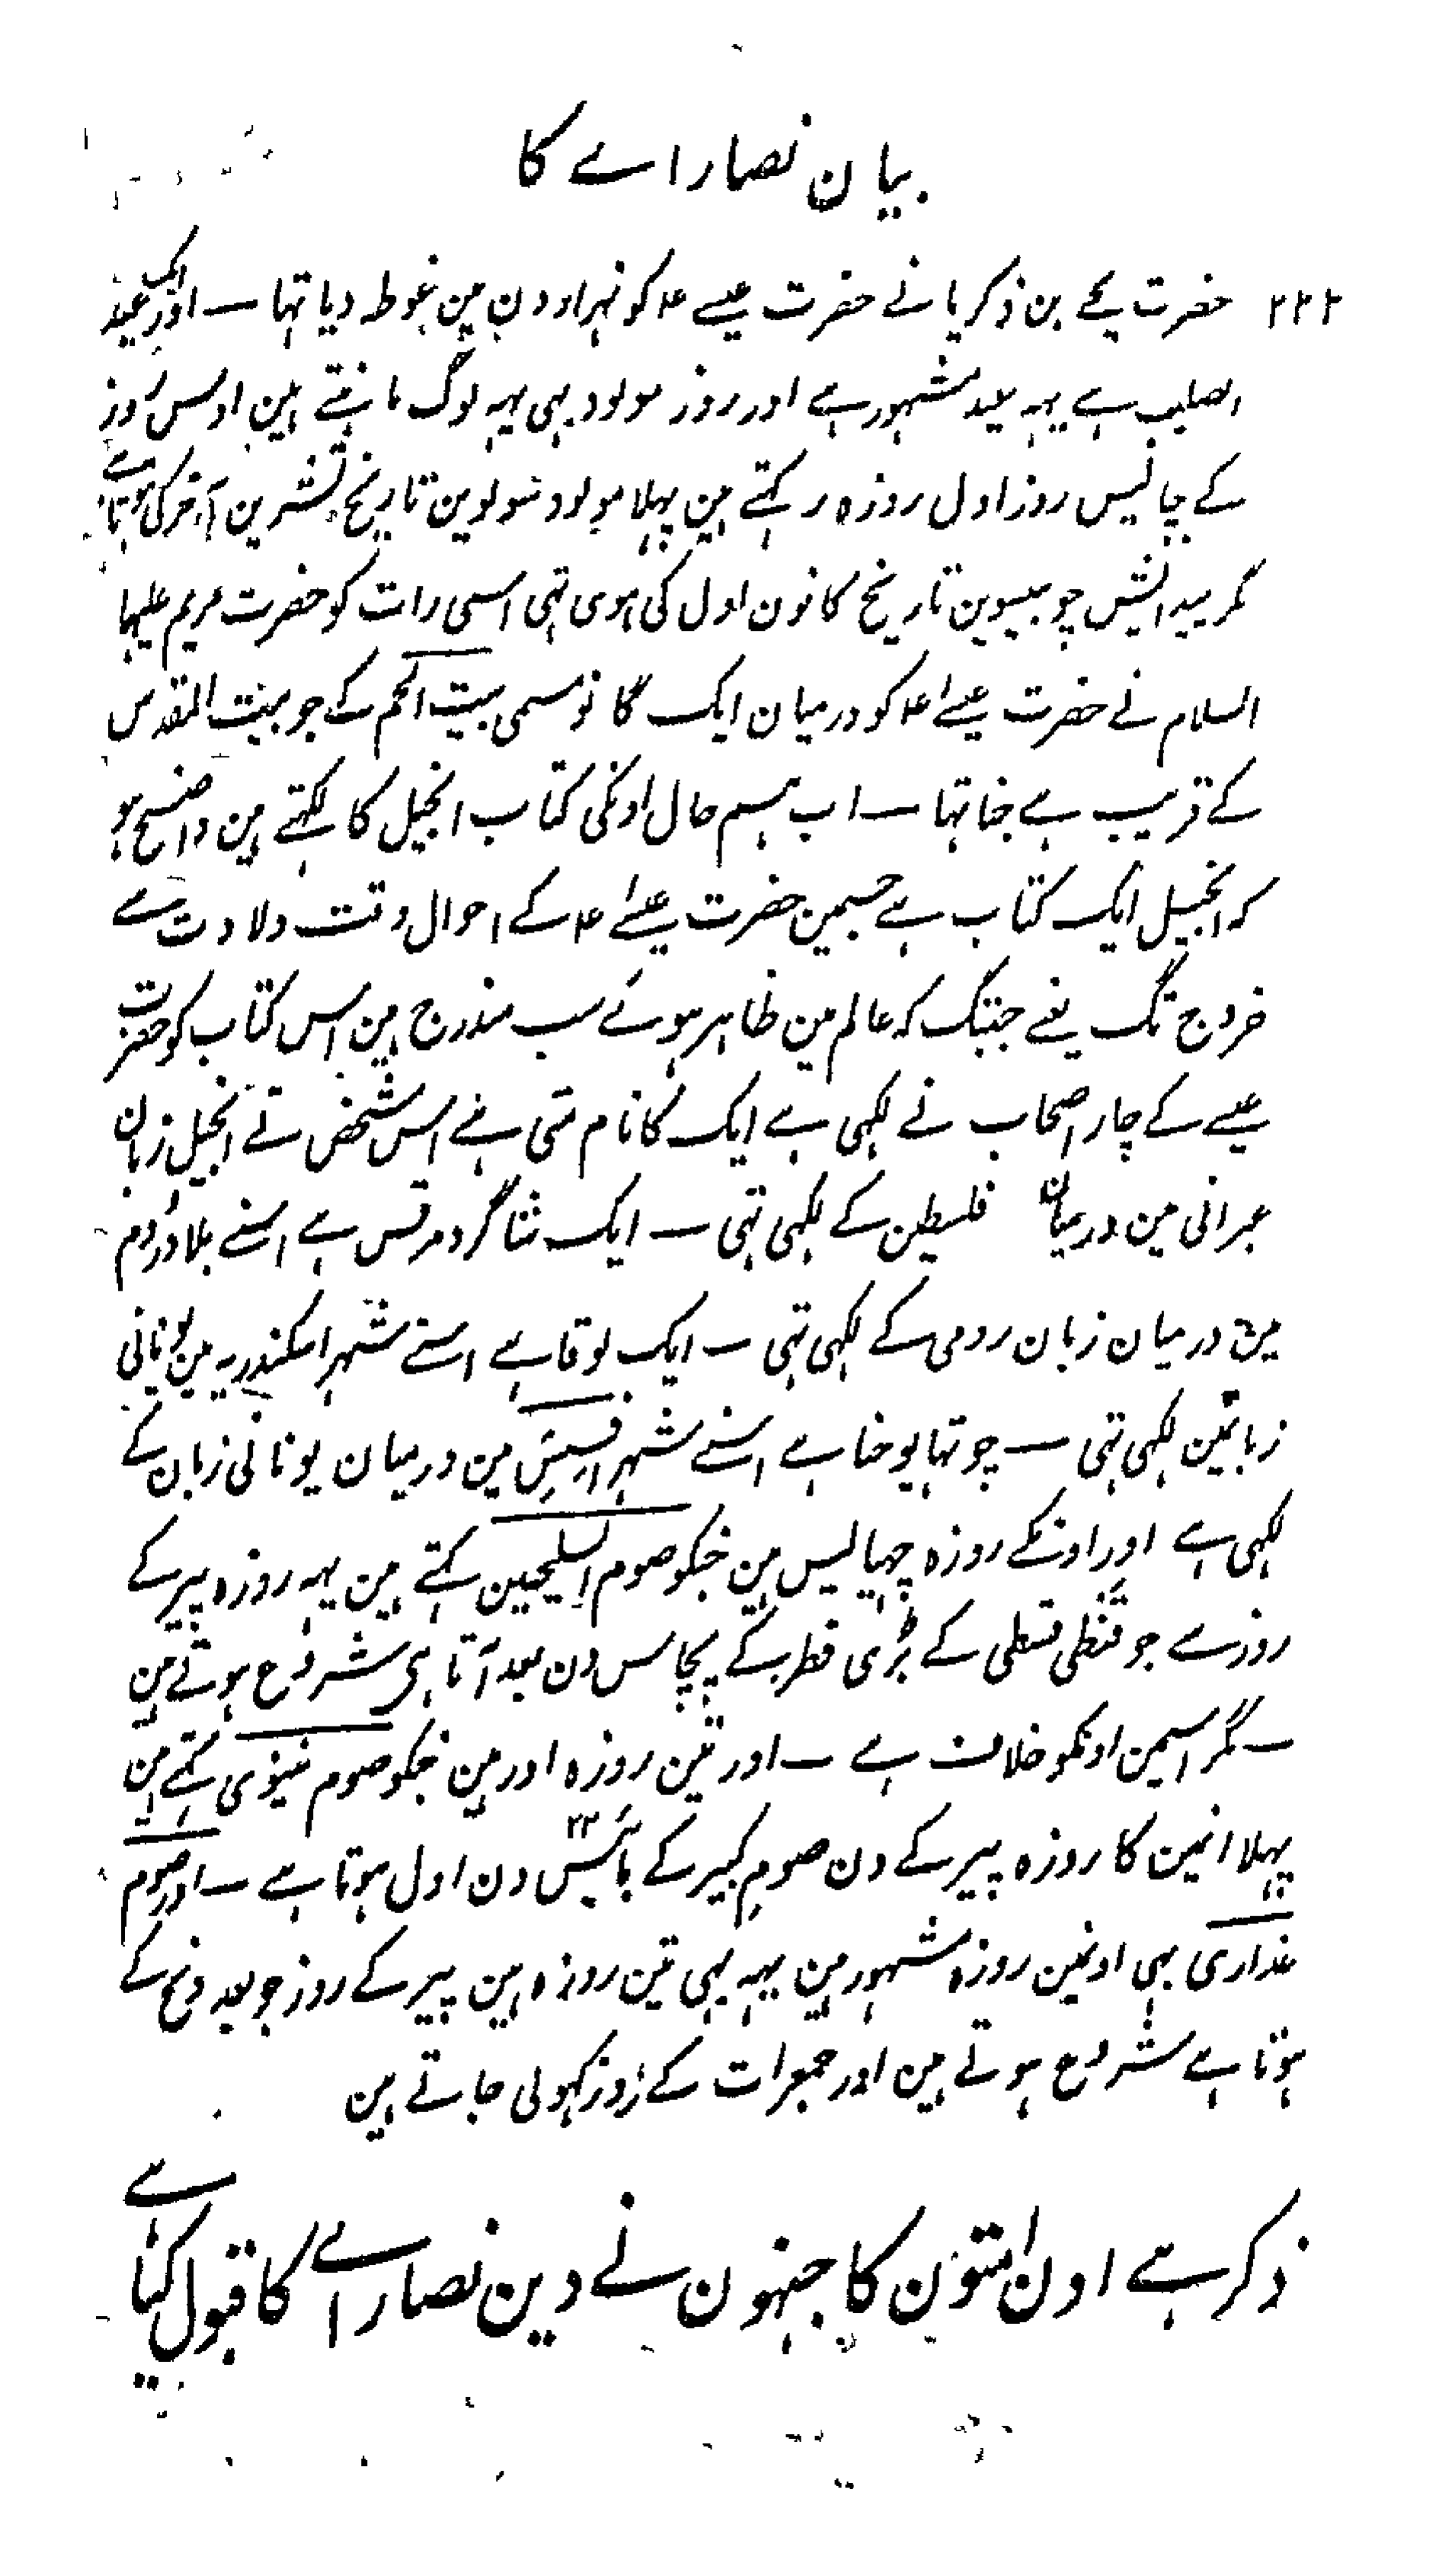 بیان نصاراے کا
۲۲۲ حضرت یحے بن ذکریا نے حضرت عیسے ۴ کو نہر اردن مین غوطہ دیا تہا ــ اور ایک عید
الصلیب ہے یہہ عید مشہور ہے اور روز مولود بہی یہہ لوگ مانتے ہین اوس روز
کے چالیس روز اول روزہ رکہتے ہین پہلا مولود سولوین تاریخ تشرین آخر کی ہوتا ہے
مگر پیدایش چوبیسوین تاریخ کانون اول کی ہوی تہی اسی رات کو حضرت مریم علیہا
السلام نے حضرت عیسےٰ ۴ کو درمیان ایک گانو مسمی بیت الحم کے جو بیت المقدس
کے قریب ہے جنا تہا ــ اب ہم حال اونکی کتاب انجیل کا لکہتے ہین واضح ہو
کہ انجیل ایک کتاب ہے جسمین حضرت عیسےٰ ۴ کے احوال وقت ولادت سے
خروج تک یعنے جبتک کہ عالم مین ظاہر ہوئے سب مندرج ہین اس کتاب کو حضرت
عیسے کے چار اصحاب نے لکہی ہے ایک کا نام متی ہے اس شخص نے انجیل زبان
عبرانی مین درمیان فلسطین کے لکہی تہی ــ ایک شاگرد مرقس ہے اسنے بلاد روم
مین درمیان زبان رومی کے لکہی تہی ــ ایک لوقا ہے اسنے شہر اسکندریہ مین یونانی
زبانین لکہی تہی ــ چوتہا یوحنا ہے اسنے شہر افسِسَ مین درمیان یونانی زبان کے
لکہی ہے اور اونکے روزہ چہیالیس ہین جنکو صوم السلیحین کہتے ہین یہہ روزہ پیر کے
روز سے جو قنطی قسطی کے بڑی فطر کے پچاس دن بعد آتا ہی شروع ہوتے ہین
ــ مگر اسمین اونکو خلاف ہے ــ اور تین روزہ اور ہین جنکو صوم نینوی کہتے ہین
پہلا انمین کا روزہ پیر کے دن صومِ کبیر کے بائیس ۲۲ دن اول ہوتا ہے ــ اور صوم
عذاری بہی اونمین روزہ مشہور ہین یہہ بہی تین روزہ ہین پیر کے روز جو بعد دنح کے
ہوتا ہے شروع ہوتے ہین اور جمعرات کے روز کہولی جاتے ہین
ذکر ہے اون امتون کا جنہون نے دین نصاراے کا قبول کیا ہے